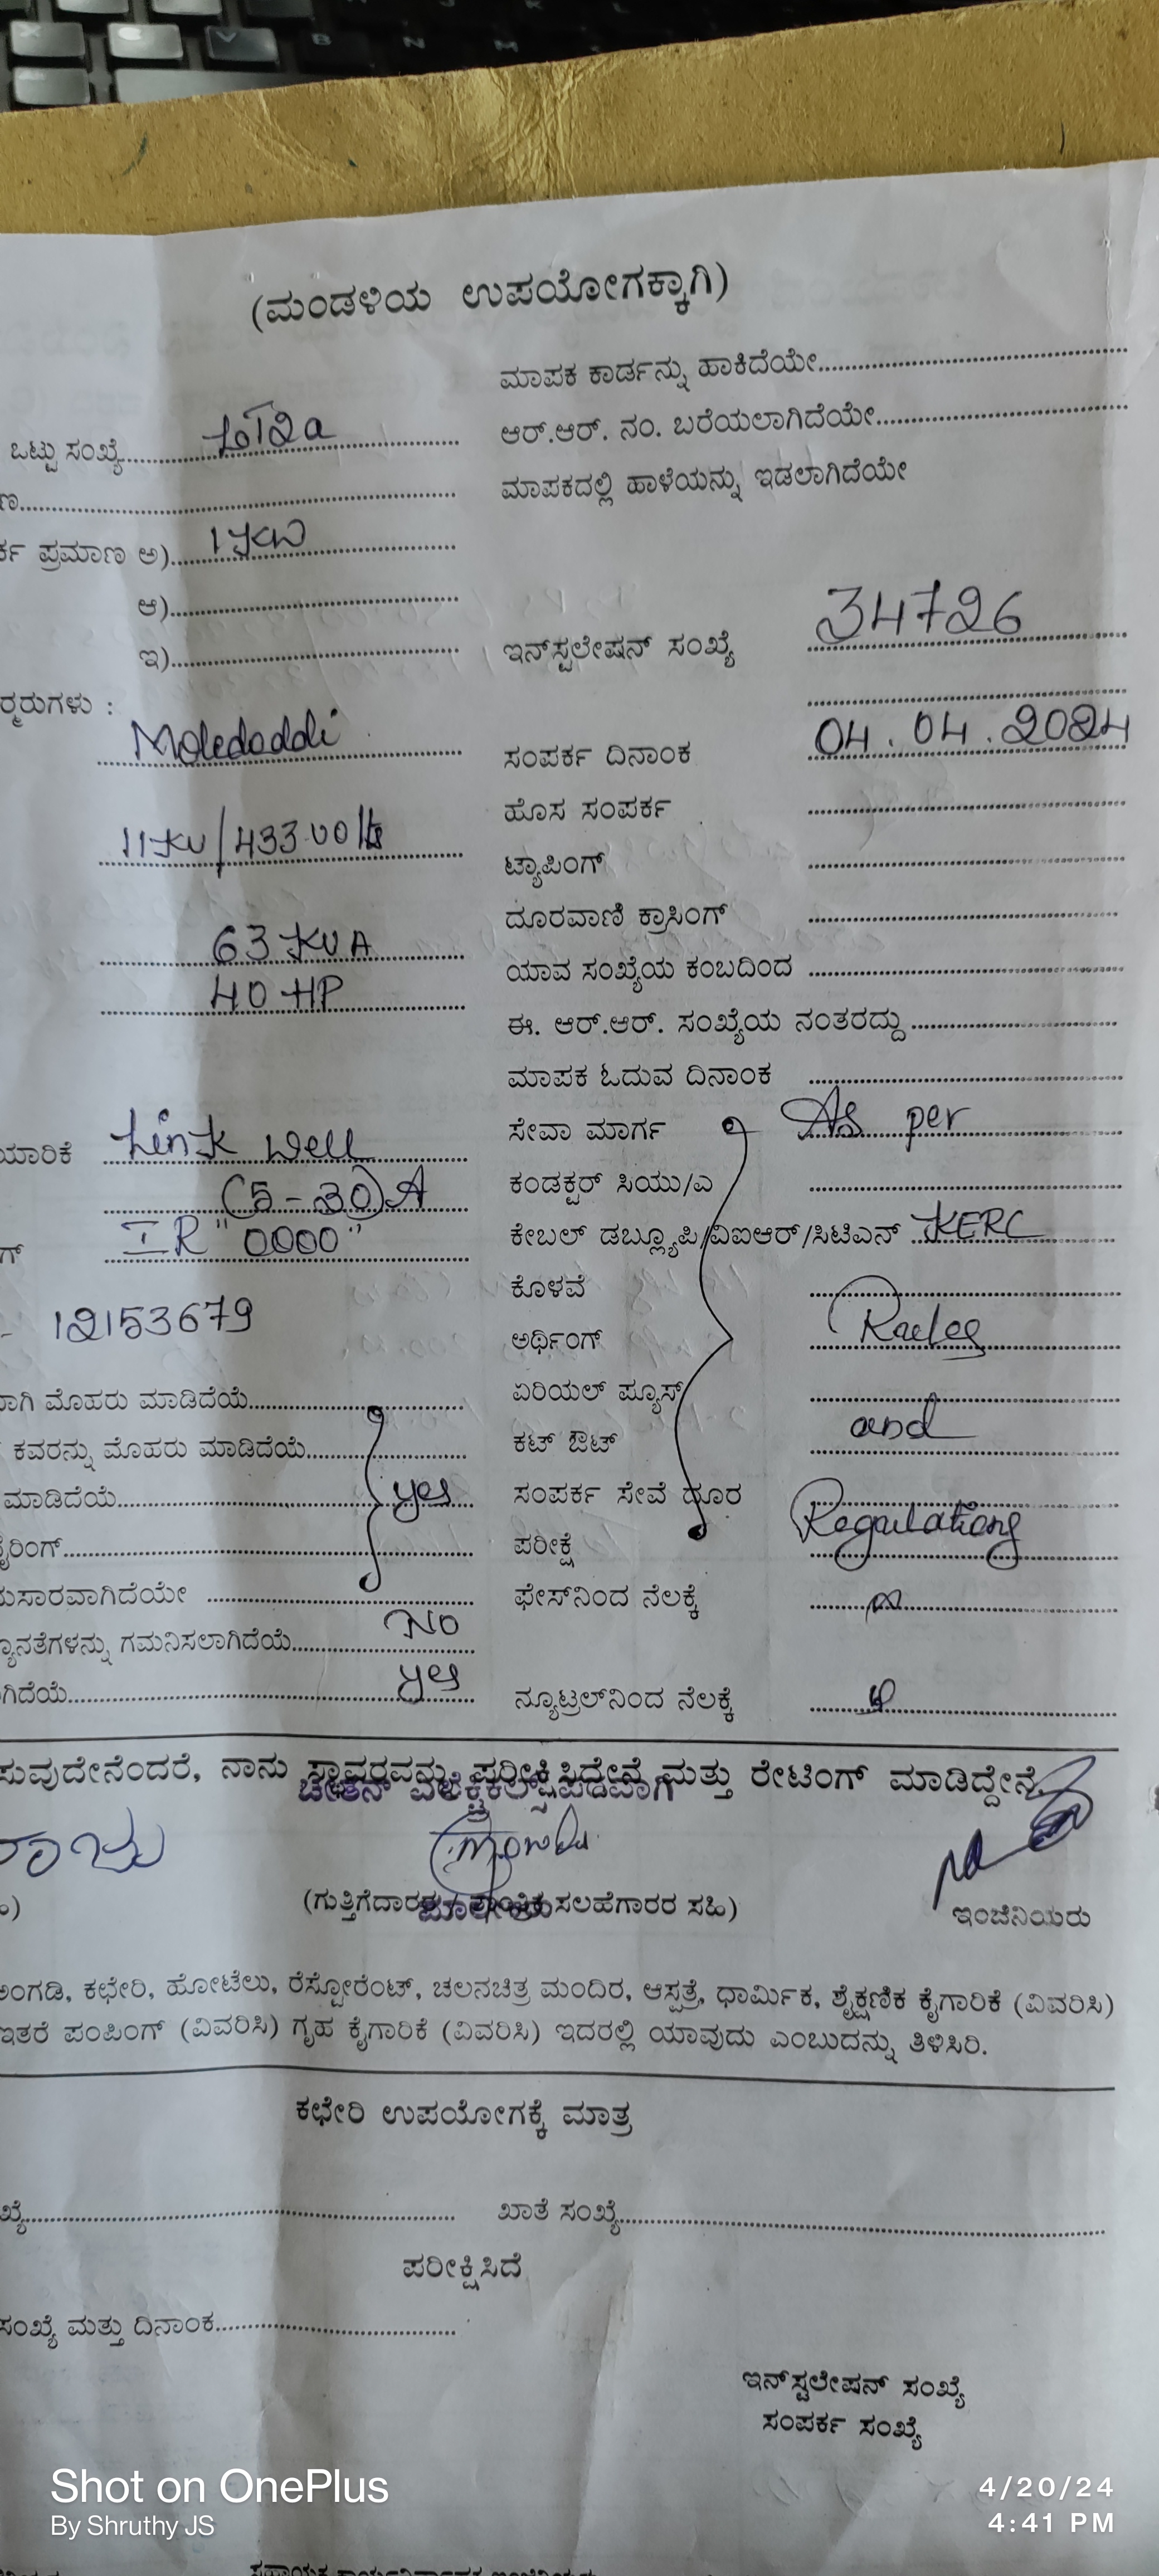 (ಮಂಡಳಿಯ ಉಪಯೋಗಕ್ಕಾಗಿ)
ಮಾಪಕ ಕಾರ್ಡನ್ನು ಹಾಕಿದೆಯೇ
ಒಟ್ಟು ಸಂಖ್ಯೆ
ಆರ್.ಆರ್. ನಂ. ಬರೆಯಲಾಗಿದೆಯೇ
ಮಾಪಕದಲ್ಲಿ ಹಾಳೆಯನ್ನು ಇಡಲಾಗಿದೆಯೇ
ಪ್ರಮಾಣ ಅ) 1 KW
ಆ)
ಇ)
ಇನ್‌ಸ್ಟಲೇಷನ್ ಸಂಖ್ಯೆ 34726
Moledoddi
ಸಂಪರ್ಕ ದಿನಾಂಕ 04.04.2024
ಹೊಸ ಸಂಪರ್ಕ
11KV/433 volts
ಟ್ಯಾಪಿಂಗ್
ದೂರವಾಣಿ ಕ್ರಾಸಿಂಗ್
63 KVA
ಯಾವ ಸಂಖ್ಯೆಯ ಕಂಬದಿಂದ
40 HP
ಈ. ಆರ್.ಆರ್. ಸಂಖ್ಯೆಯ ನಂತರದ್ದು
ಮಾಪಕ ಓದುವ ದಿನಾಂಕ
ಯಾರಿಕೆ Link Well
ಸೇವಾ ಮಾರ್ಗ As per
(5-30)A
ಕಂಡಕ್ಟರ್ ಸಿಯು/ಎ
IR "0000"
ಕೇಬಲ್ ಡಬ್ಲ್ಯೂಪಿ/ವಿಐಆರ್/ಸಿಟಿಎನ್ KERC
ಕೊಳವೆ
12153679
ಅರ್ಥಿಂಗ್ Rules
ಮೊಹರು ಮಾಡಿದೆಯೆ
ಏರಿಯಲ್ ಪ್ಯೂಸ್
ಕವರನ್ನು ಮೊಹರು ಮಾಡಿದೆಯೆ
ಕಟ್ ಔಟ್ and
ಮಾಡಿದೆಯೆ yes
ಸಂಪರ್ಕ ಸೇವೆ ದೂರ
ಪರೀಕ್ಷೆ Regulations
ಫೇಸ್‌ನಿಂದ ನೆಲಕ್ಕೆ
No
ಗಮನಿಸಲಾಗಿದೆಯೆ
yes
ನ್ಯೂಟ್ರಲ್‌ನಿಂದ ನೆಲಕ್ಕೆ
ನಾನು ಸ್ಥಾವರವನ್ನು ಪರೀಕ್ಷಿಸಿದ್ದೇನೆ ಮತ್ತು ರೇಟಿಂಗ್ ಮಾಡಿದ್ದೇನೆ
ಸಲಹೆಗಾರರ ಸಹಿ)
ಇಂಜಿನಿಯರು
ಅಂಗಡಿ, ಕಛೇರಿ, ಹೋಟೆಲು, ರೆಸ್ಟೋರೆಂಟ್, ಚಲನಚಿತ್ರ ಮಂದಿರ, ಆಸ್ಪತ್ರೆ, ಧಾರ್ಮಿಕ, ಶೈಕ್ಷಣಿಕ ಕೈಗಾರಿಕೆ (ವಿವರಿಸಿ)
ಇತರೆ ಪಂಪಿಂಗ್ (ವಿವರಿಸಿ) ಗೃಹ ಕೈಗಾರಿಕೆ (ವಿವರಿಸಿ) ಇದರಲ್ಲಿ ಯಾವುದು ಎಂಬುದನ್ನು ತಿಳಿಸಿರಿ.
ಕಛೇರಿ ಉಪಯೋಗಕ್ಕೆ ಮಾತ್ರ
ಖಾತೆ ಸಂಖ್ಯೆ
ಪರೀಕ್ಷಿಸಿದೆ
ಸಂಖ್ಯೆ ಮತ್ತು ದಿನಾಂಕ
ಇನ್‌ಸ್ಟಲೇಷನ್ ಸಂಖ್ಯೆ
ಸಂಪರ್ಕ ಸಂಖ್ಯೆ
Shot on OnePlus
By Shruthy JS
4/20/24
4:41 PM